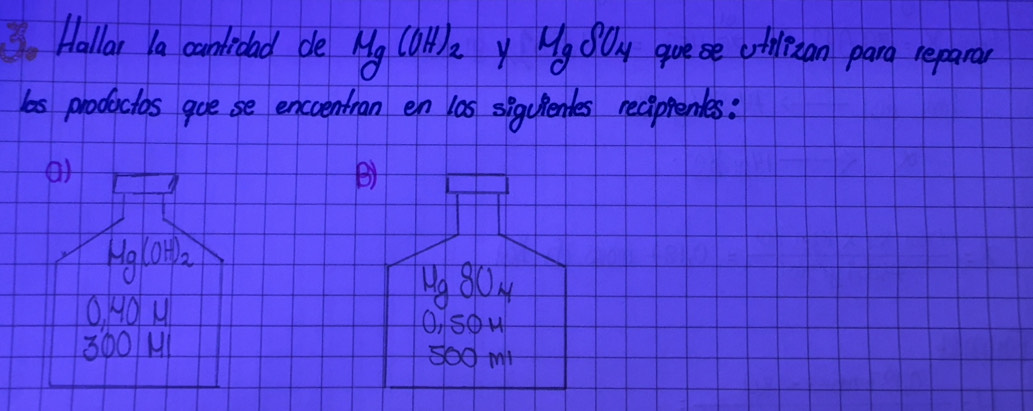 3. Hallar la cantidad de Mg(OH)2 y MgSO4 que se utilizan para reparar
los productos que se encuentran en los siguientes recipientes:
a)
B)
Mg(OH)2
0,40 M
300 Ml
Mg SO4
0,50 M
500 ml